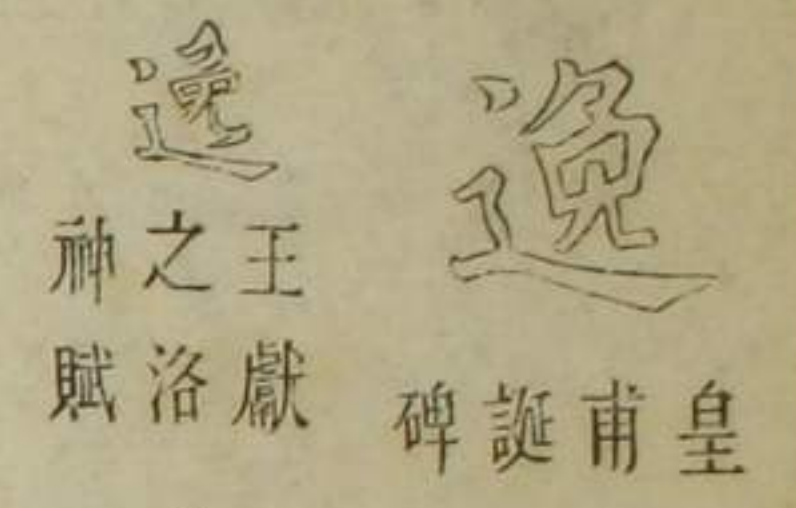 逸
皇甫誕碑
逸
王獻
之洛
神賦